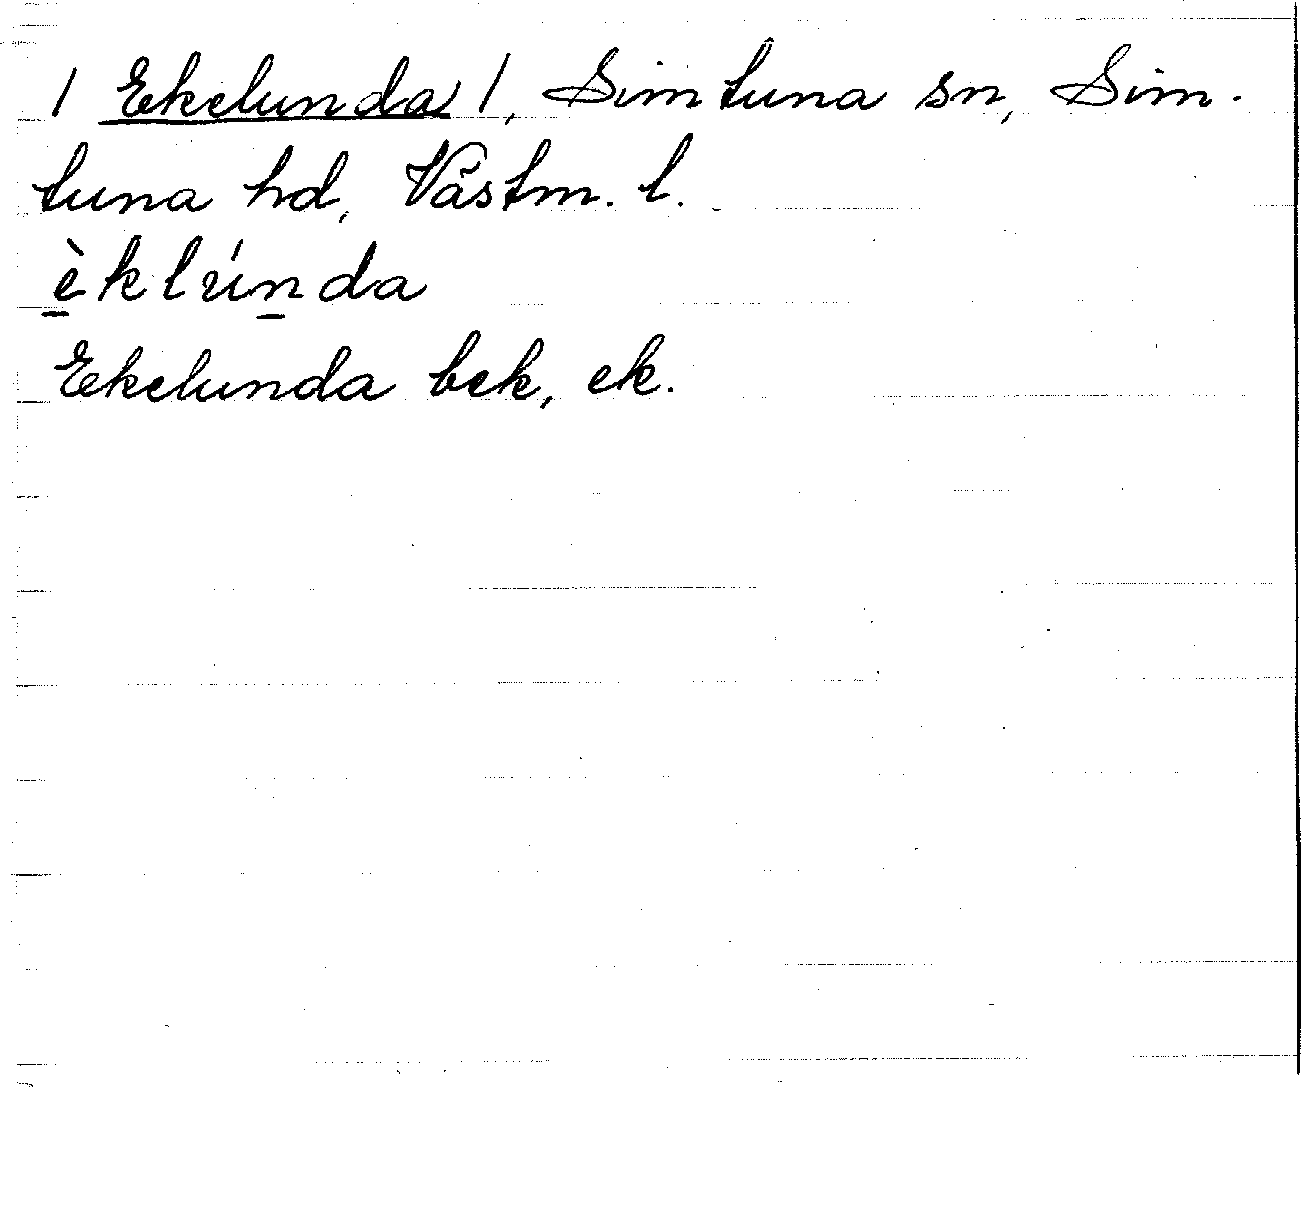 / Ekelunda /, Simtuna sn, Sim-
tuna hd, Västm. l.
èklúnda
Ekelunda bek, ek.